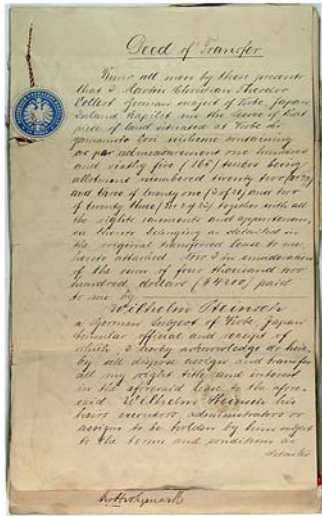 Deed of Transfer
Know all men by these presents
that I Martin Christian Theodor
German subject of Kobe, Japan
the lessee of that
piece of land situated at Kobe
containing
as per admeasurement one hundred
and sixty five (165) tsuboes being
allotment numbered twenty two
and three of twenty one (3 of 21) and two
of twenty three (2 of 23) together with all
the rights easements and appurtenan
ces thereto belonging as detailed in
the original transferred lease to me,
hereto attached. Now I in consideration
of the sum of four thousand two
hundred dollars ($4200) paid
to me by
Wilhelm Heinsch
a German Subject of Kobe, Japan
official and receipt of
which I hereby acknowledge do here
by sell dispose assign and transfer
all my right title and interest
in the aforesaid lease to the afore
said Wilhelm Heinsch his
heirs executors, administrators or
assigns to be holden by him subject
to the terms and conditions as
detailed